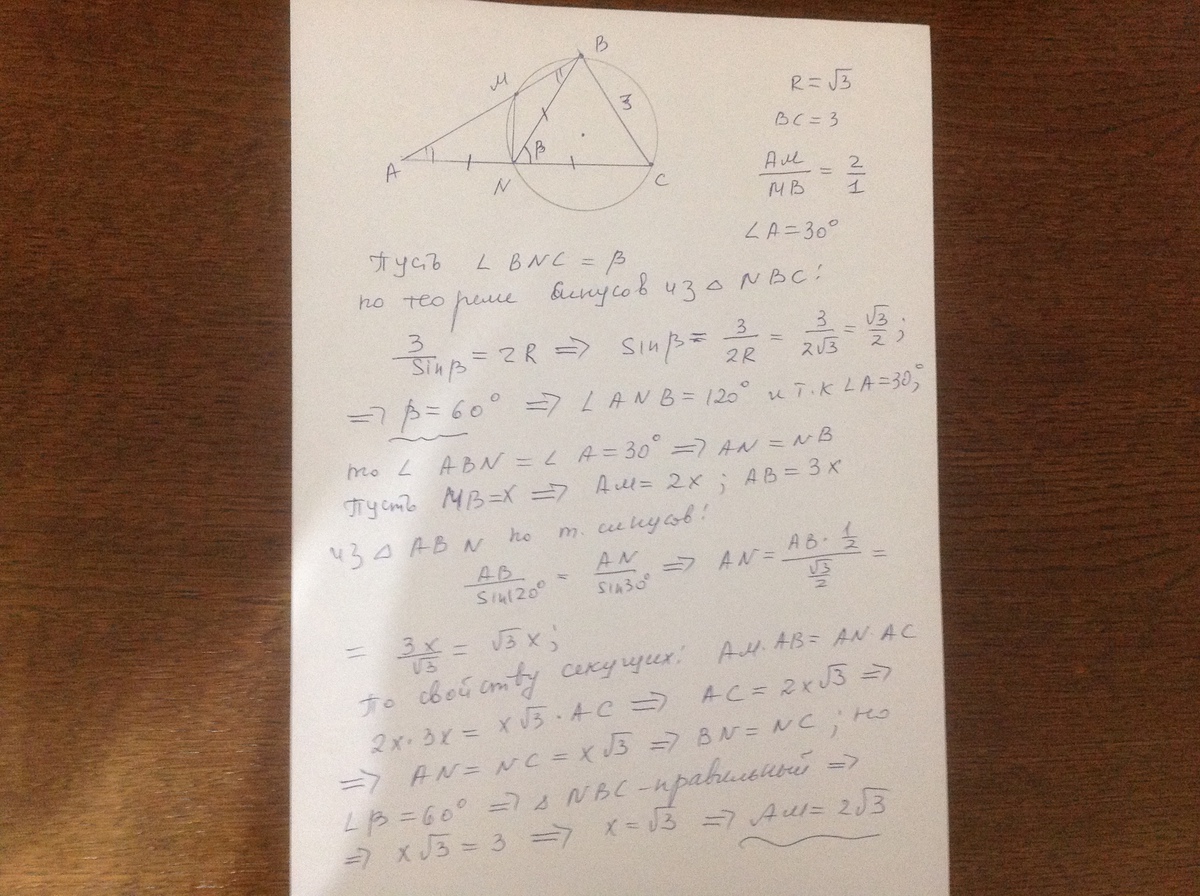 B
M
3
A
β
N
C
R = √3
BC = 3
AM/MB = 2/1
∠A = 30°
Пусть ∠BNC = β
по теореме синусов из △ NBC:
3/Sinβ = 2R ⇒ Sinβ = 3/2R = 3/2√3 = √3/2;
⇒ β = 60° ⇒ ∠ANB = 120° и т.к ∠A = 30°,
то ∠ABN = ∠A = 30° ⇒ AN = NB
Пусть MB = x ⇒ AM = 2x; AB = 3x
из △ ABN по т. синусов:
AB/Sin120° = AN/sin30° ⇒ AN = AB · 1/2 / √3/2 =
= 3x/√3 = √3x;
По свойству секущих: AM·AB = AN·AC
2x·3x = x√3·AC ⇒ AC = 2x√3 ⇒
⇒ AN = NC = x√3 ⇒ BN = NC; но
∠β = 60° ⇒ △ NBC - правильный ⇒
⇒ x√3 = 3 ⇒ x = √3 ⇒ AM = 2√3